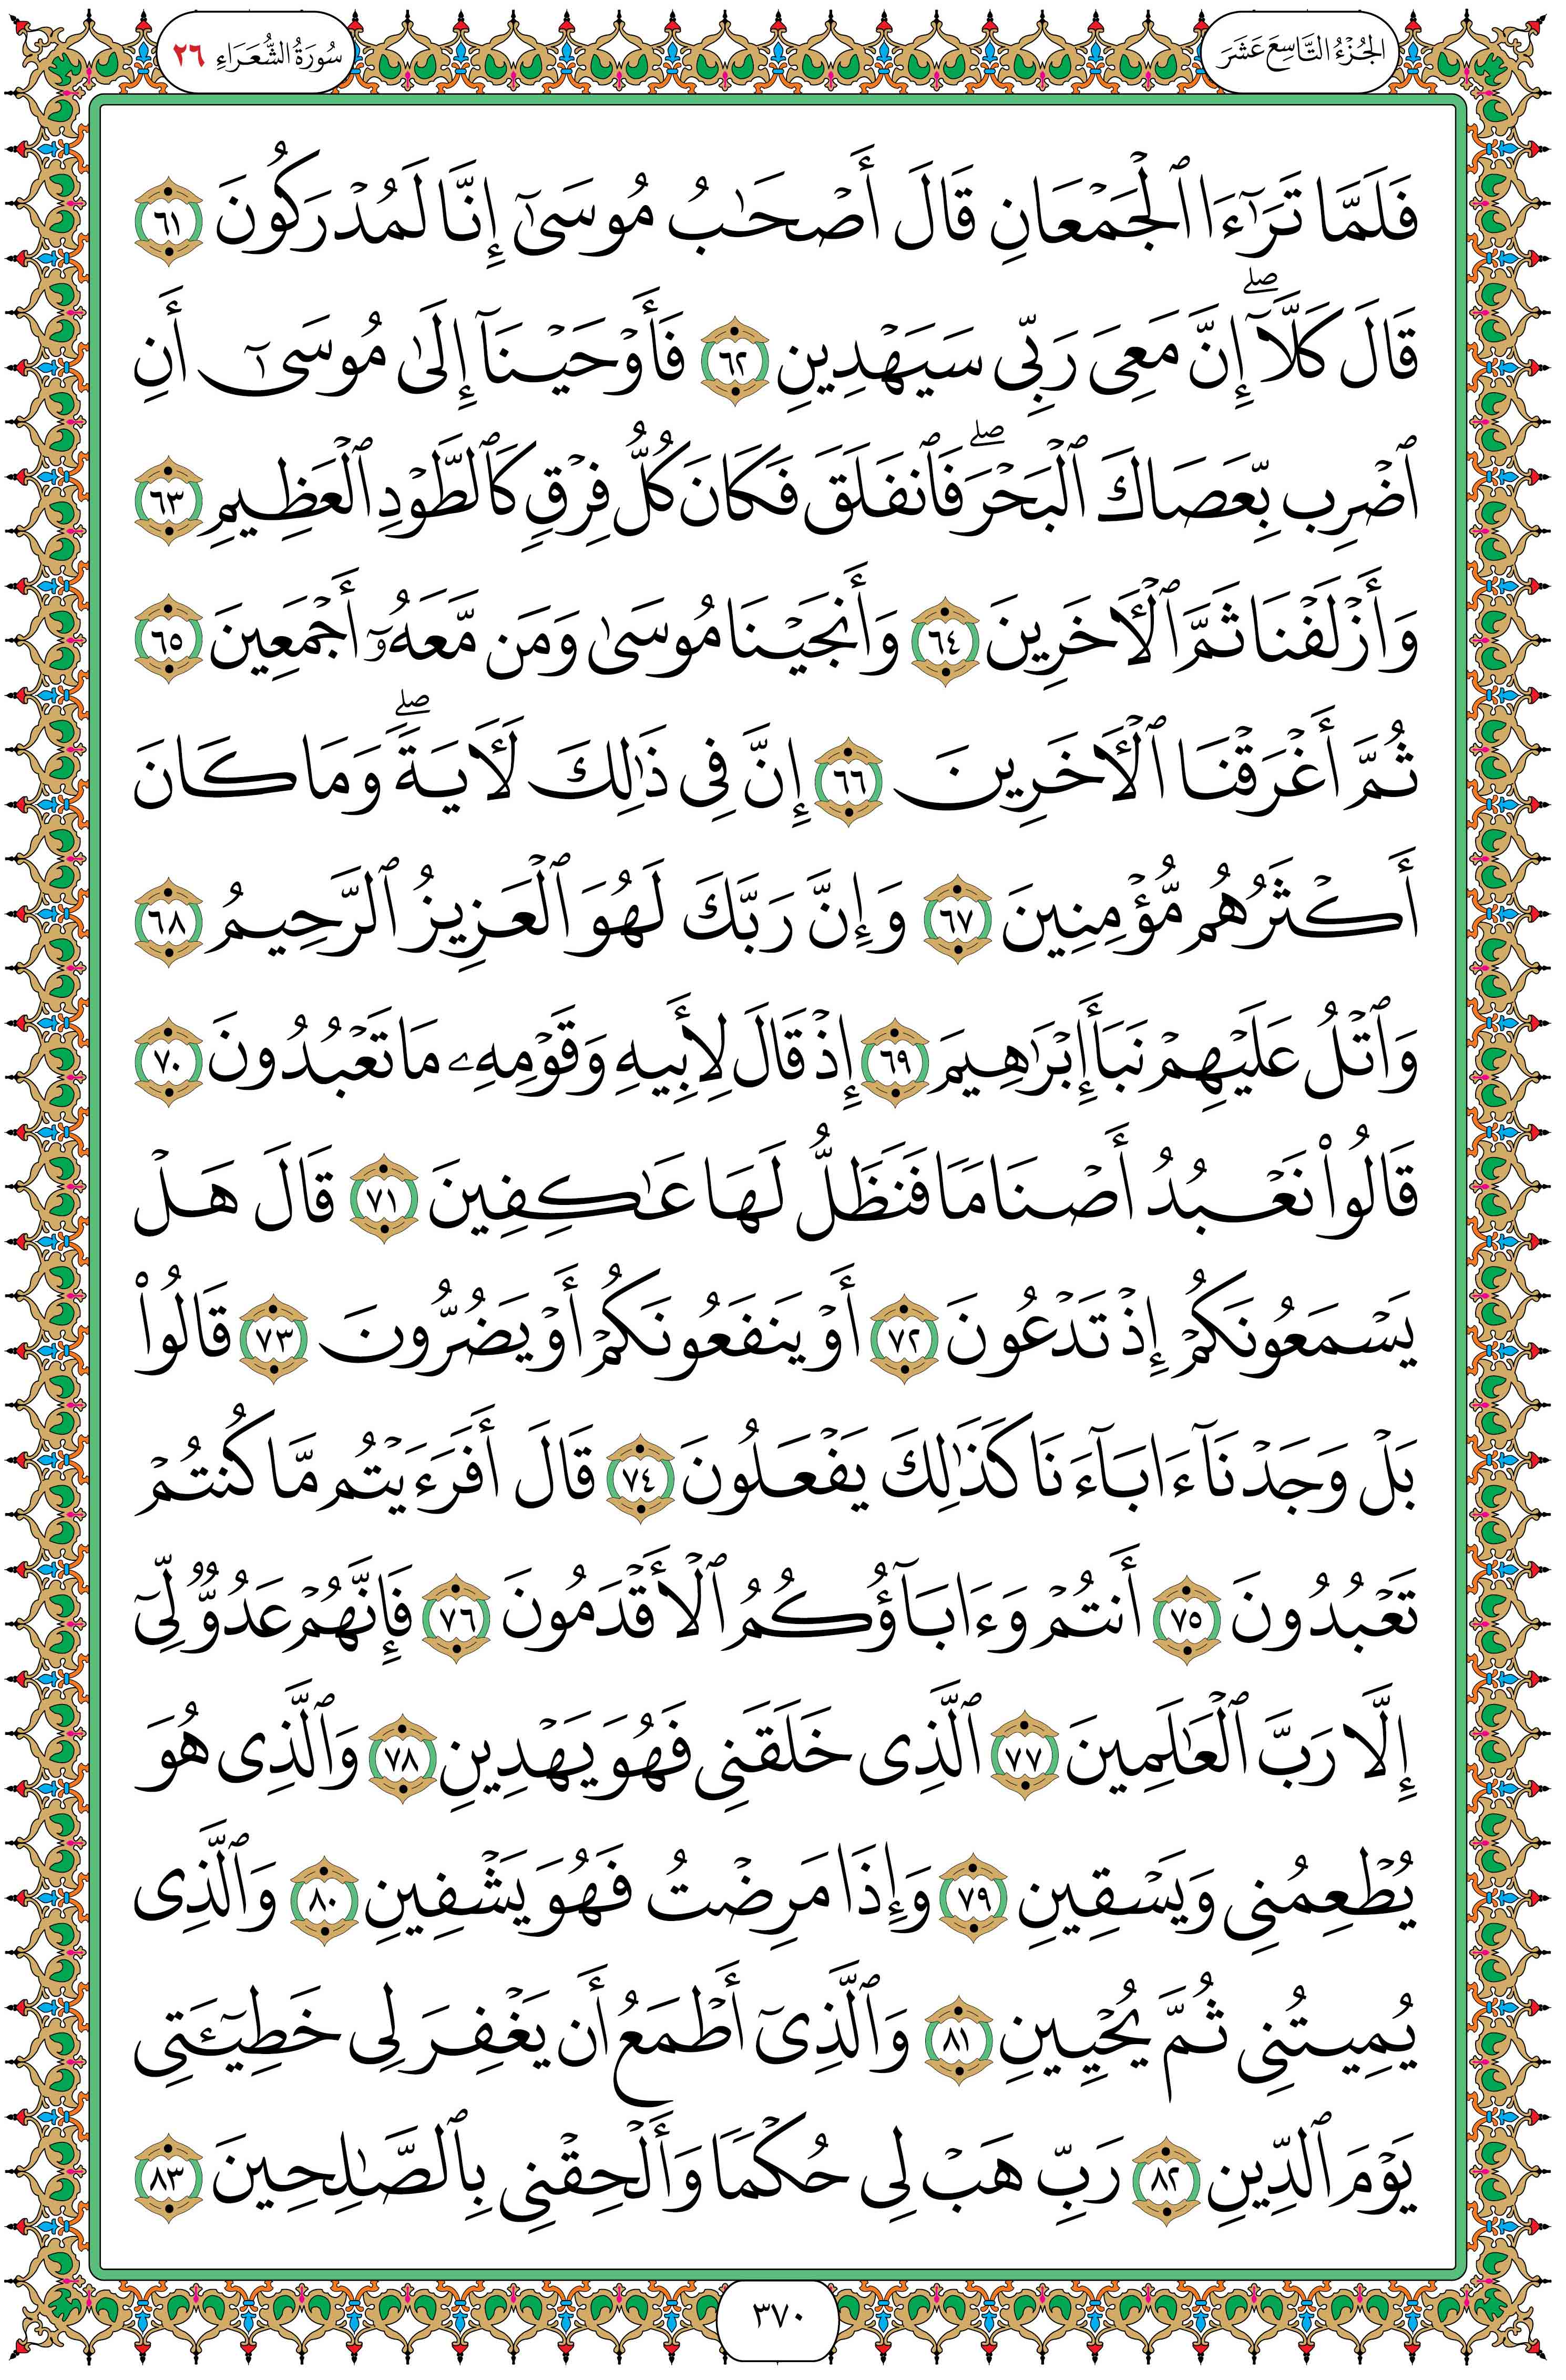 الجُزْءُ التَّاسِعَ عَشَرَ
سُورَةُ الشُّعَرَاءِ ٢٦
فَلَمَّا تَرَٰٓءَا ٱلۡجَمۡعَانِ قَالَ أَصۡحَٰبُ مُوسَىٰٓ إِنَّا لَمُدۡرَكُونَ ٦١
قَالَ كَلَّآۖ إِنَّ مَعِيَ رَبِّي سَيَهۡدِينِ ٦٢ فَأَوۡحَيۡنَآ إِلَىٰ مُوسَىٰٓ أَنِ
ٱضۡرِب بِّعَصَاكَ ٱلۡبَحۡرَۖ فَٱنفَلَقَ فَكَانَ كُلُّ فِرۡقٖ كَٱلطَّوۡدِ ٱلۡعَظِيمِ ٦٣
وَأَزۡلَفۡنَا ثَمَّ ٱلۡأٓخَرِينَ ٦٤ وَأَنجَيۡنَا مُوسَىٰ وَمَن مَّعَهُۥٓ أَجۡمَعِينَ ٦٥
ثُمَّ أَغۡرَقۡنَا ٱلۡأٓخَرِينَ ٦٦ إِنَّ فِي ذَٰلِكَ لَأٓيَةٗۖ وَمَا كَانَ
أَكۡثَرُهُم مُّؤۡمِنِينَ ٦٧ وَإِنَّ رَبَّكَ لَهُوَ ٱلۡعَزِيزُ ٱلرَّحِيمُ ٦٨
وَٱتۡلُ عَلَيۡهِمۡ نَبَأَ إِبۡرَٰهِيمَ ٦٩ إِذۡ قَالَ لِأَبِيهِ وَقَوۡمِهِۦ مَا تَعۡبُدُونَ ٧٠
قَالُواْ نَعۡبُدُ أَصۡنَامٗا فَنَظَلُّ لَهَا عَٰكِفِينَ ٧١ قَالَ هَلۡ
يَسۡمَعُونَكُمۡ إِذۡ تَدۡعُونَ ٧٢ أَوۡ يَنفَعُونَكُمۡ أَوۡ يَضُرُّونَ ٧٣ قَالُواْ
بَلۡ وَجَدۡنَآ ءَابَآءَنَا كَذَٰلِكَ يَفۡعَلُونَ ٧٤ قَالَ أَفَرَءَيۡتُم مَّا كُنتُمۡ
تَعۡبُدُونَ ٧٥ أَنتُمۡ وَءَابَآؤُكُمُ ٱلۡأَقۡدَمُونَ ٧٦ فَإِنَّهُمۡ عَدُوّٞ لِّيٓ
إِلَّا رَبَّ ٱلۡعَٰلَمِينَ ٧٧ ٱلَّذِي خَلَقَنِي فَهُوَ يَهۡدِينِ ٧٨ وَٱلَّذِي هُوَ
يُطۡعِمُنِي وَيَسۡقِينِ ٧٩ وَإِذَا مَرِضۡتُ فَهُوَ يَشۡفِينِ ٨٠ وَٱلَّذِي
يُمِيتُنِي ثُمَّ يُحۡيِينِ ٨١ وَٱلَّذِيٓ أَطۡمَعُ أَن يَغۡفِرَ لِي خَطِيٓـَٔتِي
يَوۡمَ ٱلدِّينِ ٨٢ رَبِّ هَبۡ لِي حُكۡمٗا وَأَلۡحِقۡنِي بِٱلصَّٰلِحِينَ ٨٣
٣٧٠